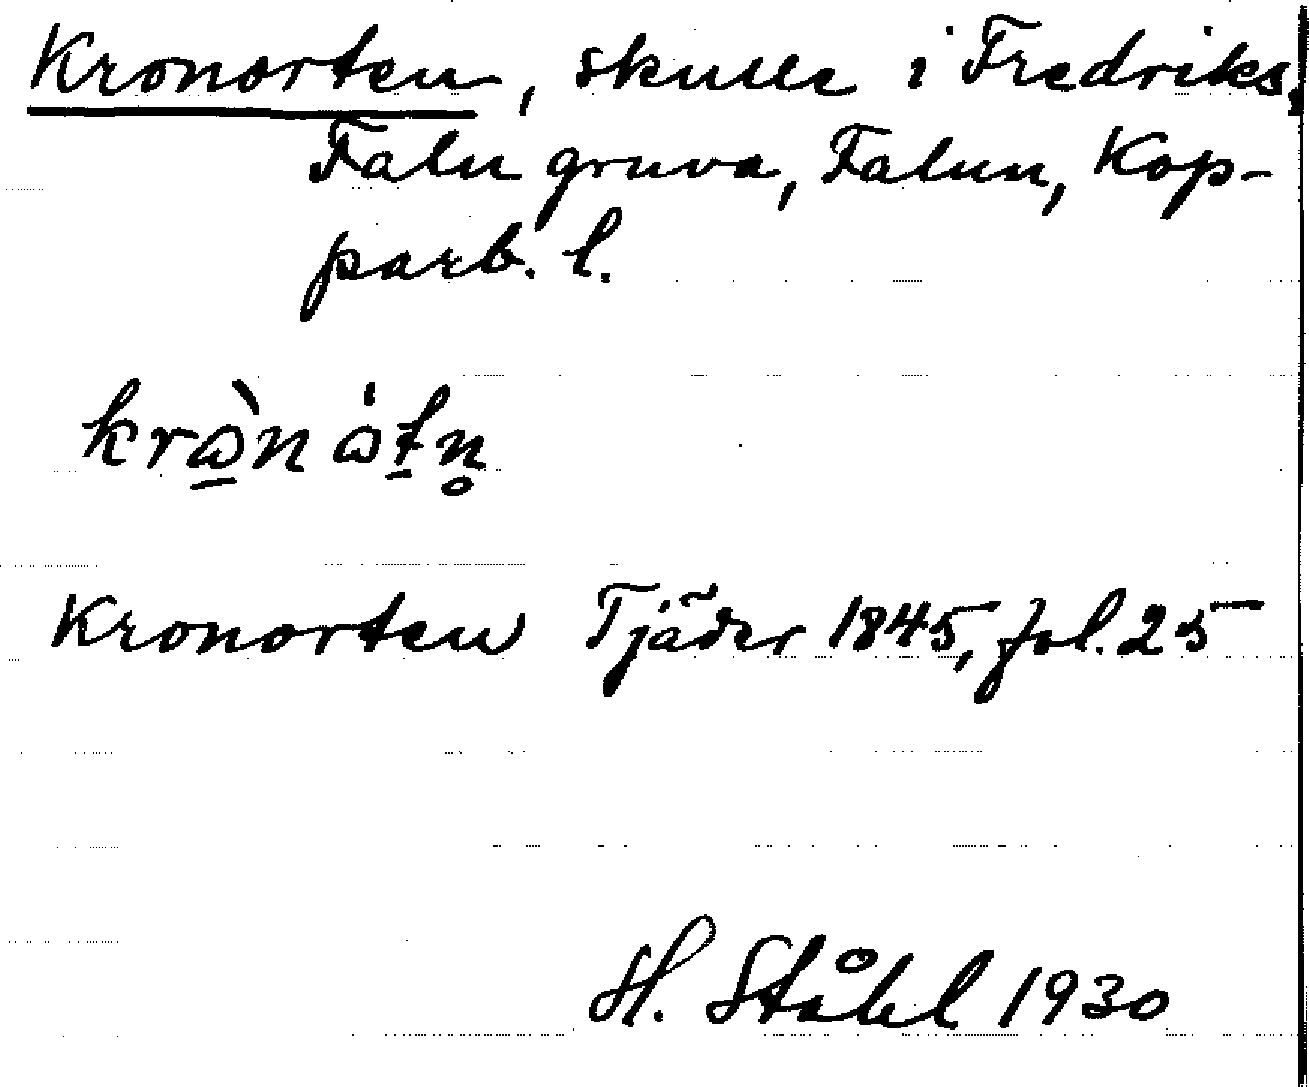 Kronorten, skulle i Fredriks,
Falu gruva, Falun, Kop-
parb. l.
Kronorten Tjäder 1845, fol. 25
H. Ståhl 1930